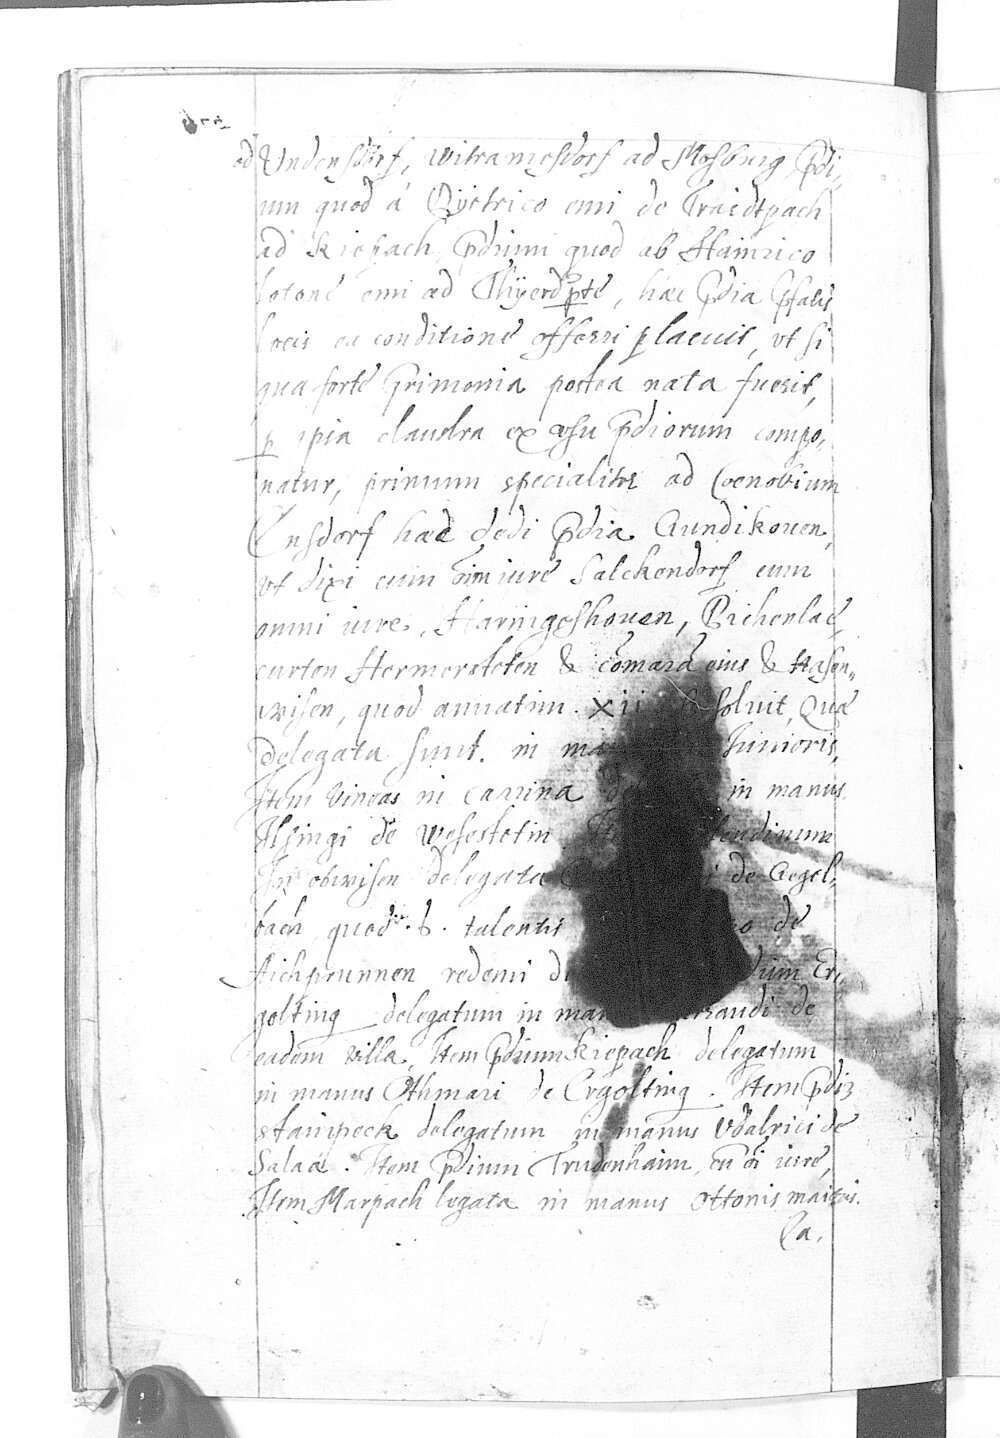 ad Undensdorf, Witramesdorf ad Mosburg p̄di,
um quod á Dÿetrico emi de Traidtpach
ad Kirpach, p̄dium quod ab Hainrico
lotone emi ad Thÿerdp̄te, hæc p̄dia p̄fatis
locis ea conditione offerri placuit, vt si
qua forte q̄rimonia postea nata fuerit,
p ipsa claudra ex usu p̄diorum compo,
natur, primum specialiter ad Coenobium
Ensdorf hæc dedi p̄dia Gundikouen,
vt dixi cum om̄i iure Salckendorf cum
omni iure, Haringeshouen, Richenlac,
curten Hermersteten & comara eius & Hasen,,
wisen, quod annatim . xii soluit, Quæ
delegata sunt. in Iunioris,
Item Vineas in Carrina in manus
Ilsingi de Wesestetin
In obwisen delegata de Gegel,,
bach quod . b . talentis de
Aichprunnen redemi Er,
golting delegatum in de
eadem villa, Item p̄dium Kirpach delegatum
in manus Othmari de Ergolting . Item p̄diū
stainpeck delegatum in manus Vdalrici de
Salaá . Item p̄dium Trudenhaim, cū oī iure,
Item Marpach legata in manus Ottonis maioris.
Ca,